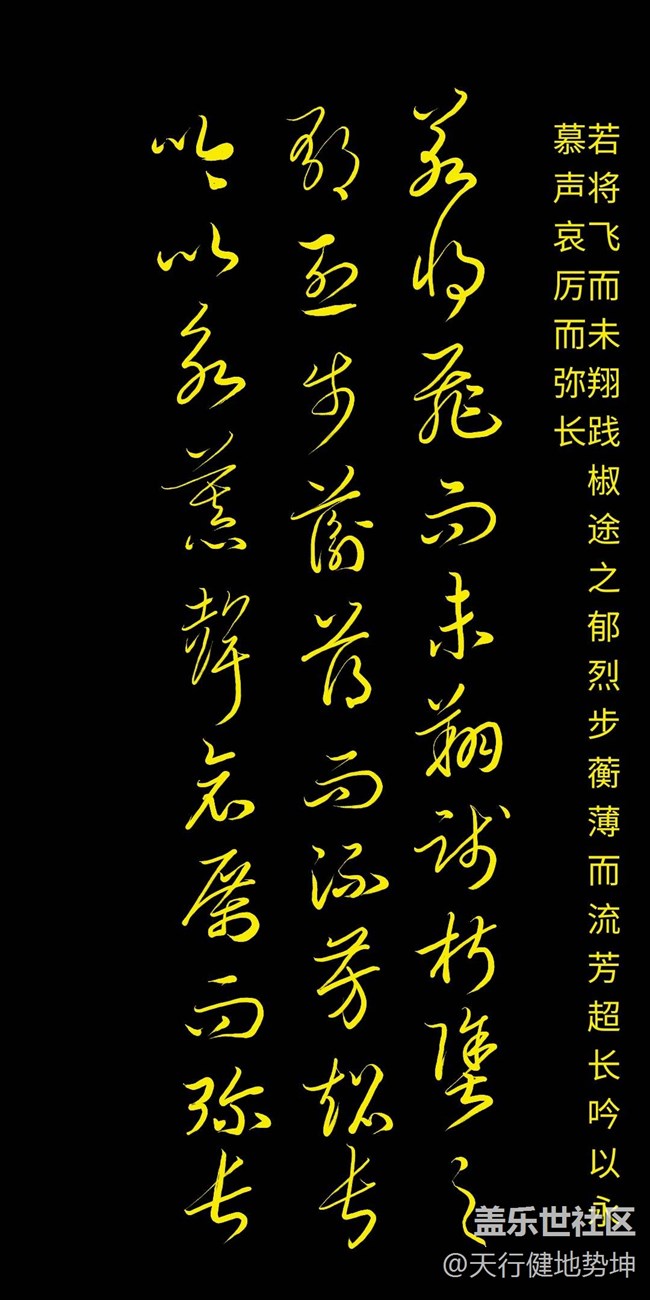 若将飞而未翔践椒途之郁烈步蘅薄而流芳超长吟以永
慕声哀厉而弥长
若将飛而未翔踐椒塗之
郁烈步蘅薄而流芳超长
吟以永慕聲哀厲而弥长
盖乐世社区
@天行健地势坤